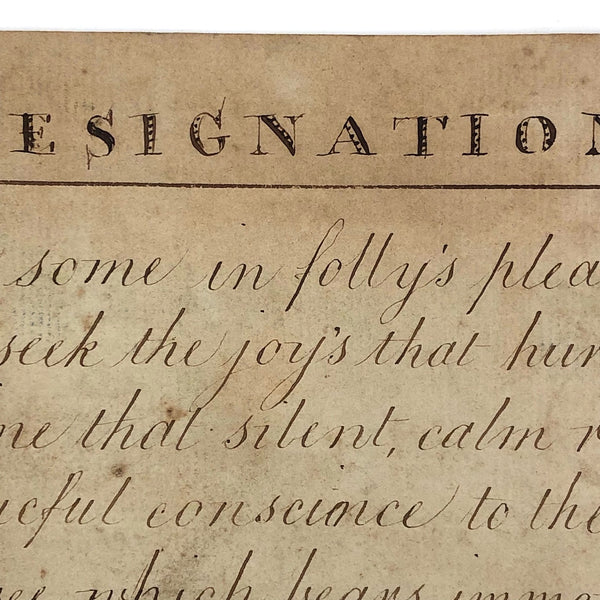 ESIGNATION
some in folly's plea
seek the joy's that hur
ne that silent, calm r
ceful conscince to the
ee which bears immo